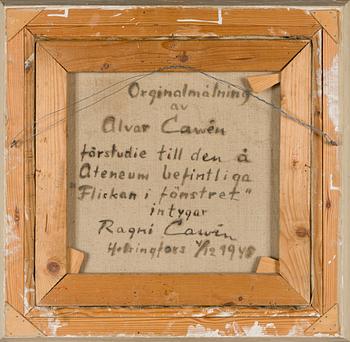 Orginalmålning
av
Alvar Cawén
förstudie till den å
Ateneum befintliga
"Flickan i fönstret"
intygar
Ragni Cawén
Helsingfors